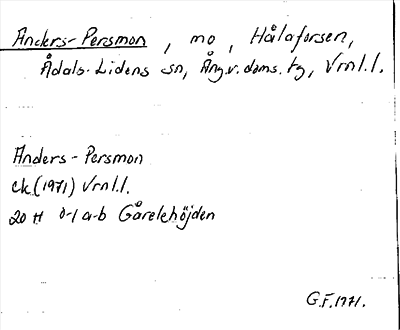 Anders-Persmon, mo, Hålaforsen,
Ådals-Lidens sn, Ång.v.doms.tg, Vrnl.l.
Anders-Persmon
ek.(1971) Vrnl.l.
20 H 0-1 a-b Gårelehöjden
G.F. 1971.